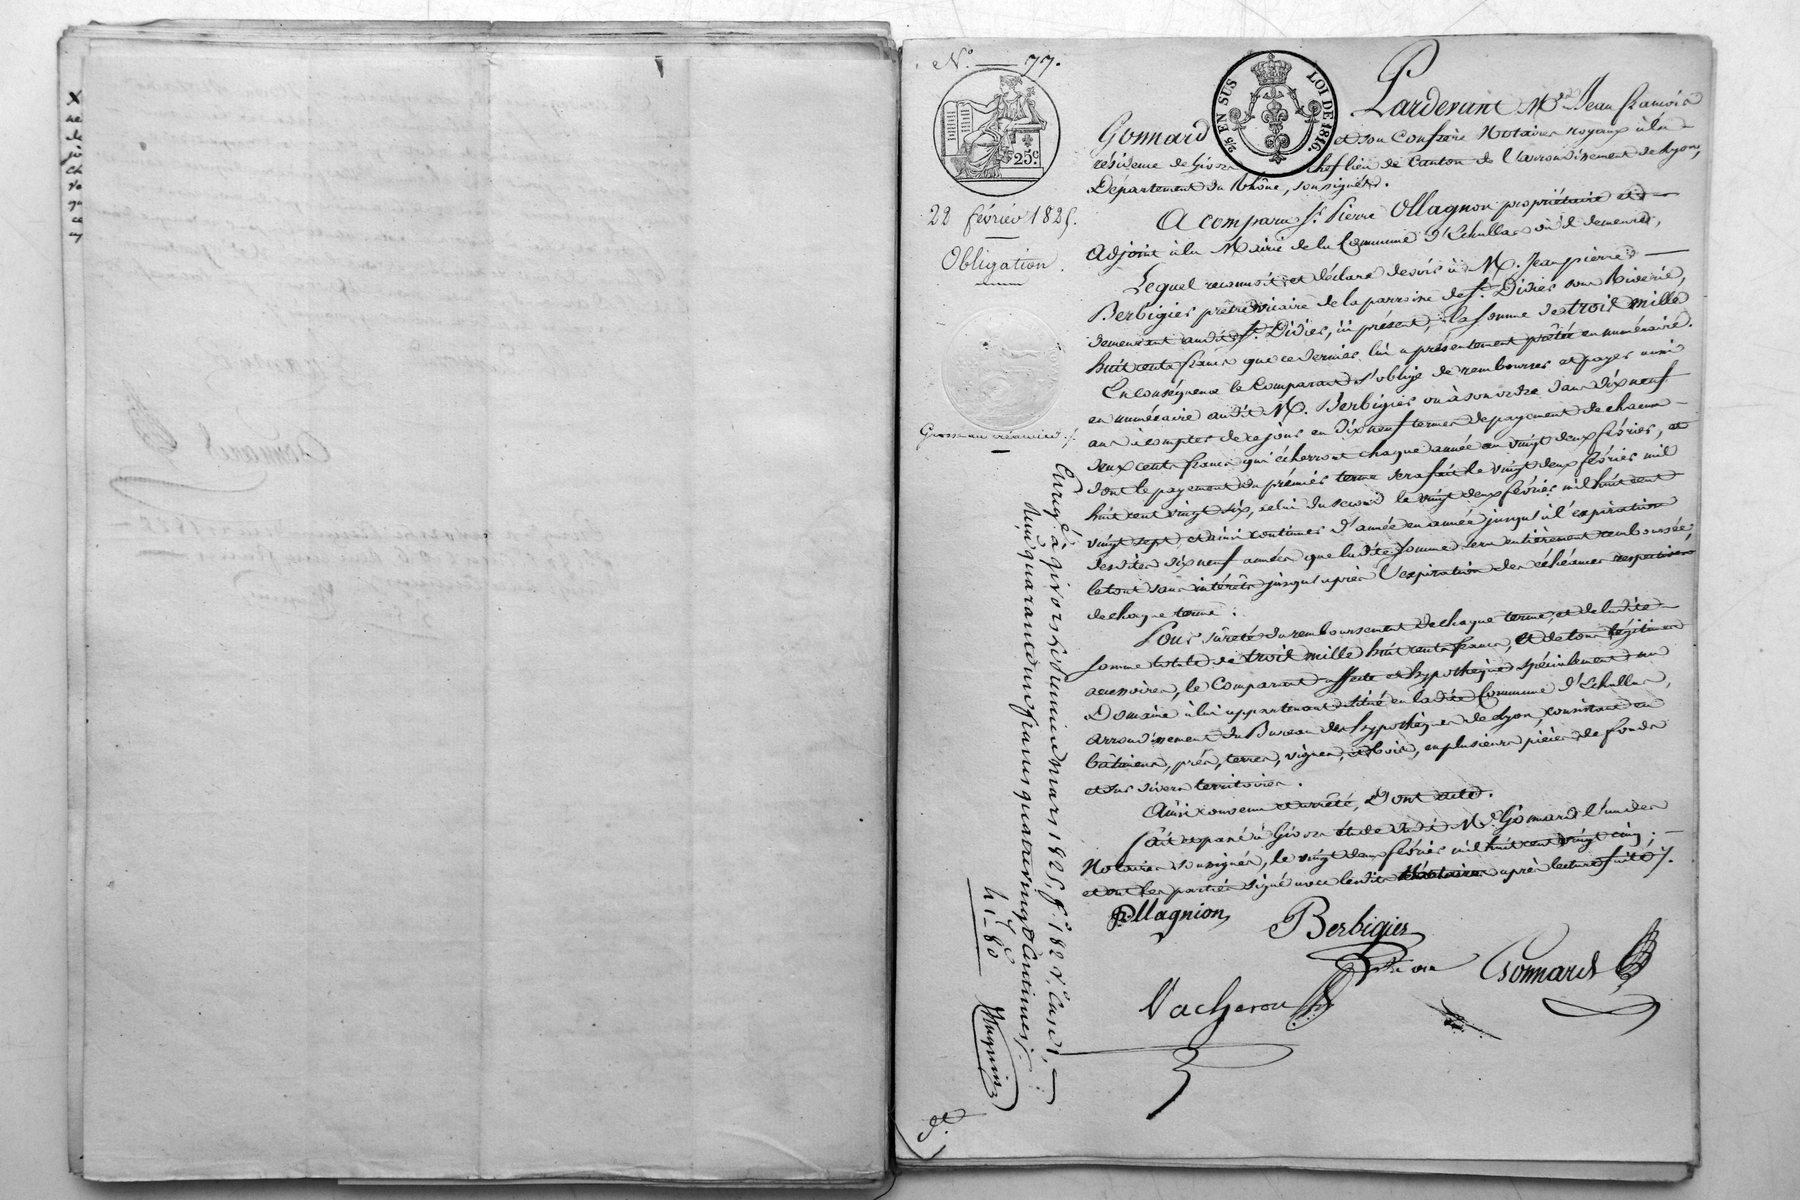 N.° 77.
25c
2/5 EN SUS LOI DE 1816.
22 février 1825.
Obligation.
Grosse au créancier.
Pardevant Me Jean françois
Gonnard et son Confrère Notaires royaux à la
résidence de Givors chef lieu de Canton de l'arrondissement de Lyon,
Département du Rhône, soussignés.
A comparu Sr. Pierre Ollagnon propriétaire et
Adjoint à la Mairie de la Commune d'Echallas où il demeure,
Lequel reconnoit et déclare devoir à M. Jean pierre
Berbigier prêtre vicaire de la parroisse de St. Didier sous Riverie,
demeurant audit St. Didier, ici présent, la somme de trois mille
huit cents francs que ce dernier lui a présentement prêtée en numéraire.
En conséquence le Comparant s'oblige de rembourser et payer aussi
en numéraire audit M. Berbigier ou à son ordre dans dix neuf
ans à compter de ce jour en dix neuf termes de payement de chacun
deux cents francs qui écherront chaque année au vingt deux février, et
dont le payement du premier terme sera fait le vingt deux février mil
huit cent vingt six, celui du second le vingt deux février mil huit cent
vingt sept et ainsi continuer d'année en année jusqu'à l'expiration
desdites dix neuf années que ladite somme sera entièrement remboursée;
le tout sans intérêts jusqu'après l'expiration des échéances respectives
de chaque terme.
Pour sûreté du remboursement de chaque terme, et de ladite
somme totale de trois mille huit cents francs, et de tous légitimes
accessoires, le Comparant affecte et hypothèque spécialement un
Domaine à lui appartenant situé en ladite Commune d'Echallas,
arrondissement du Bureau des hypothèques de Lyon, consistant en
bâtimens, prés, terres, vignes, et bois, en plusieurs pièces de fonds
et sur divers territoires.
Ainsi convenu et arrêté, Dont acte.
fait et passé à Givors étude dudit Me Gonnard l'un des
Notaires soussignés, le vingt deux février mil huit cent vingt cinq;
et ont les parties signé avec lesdits Notaires après lecture faite.
P. Ollagnion
Berbigier
Vicaire
Gonnard
Vacheron
Enregé à Givors le deux mars 1825, f° 182 V° Case 1,
Reçu quarante un francs quatre vingt Centimes.
41 f 80 c
Huguin